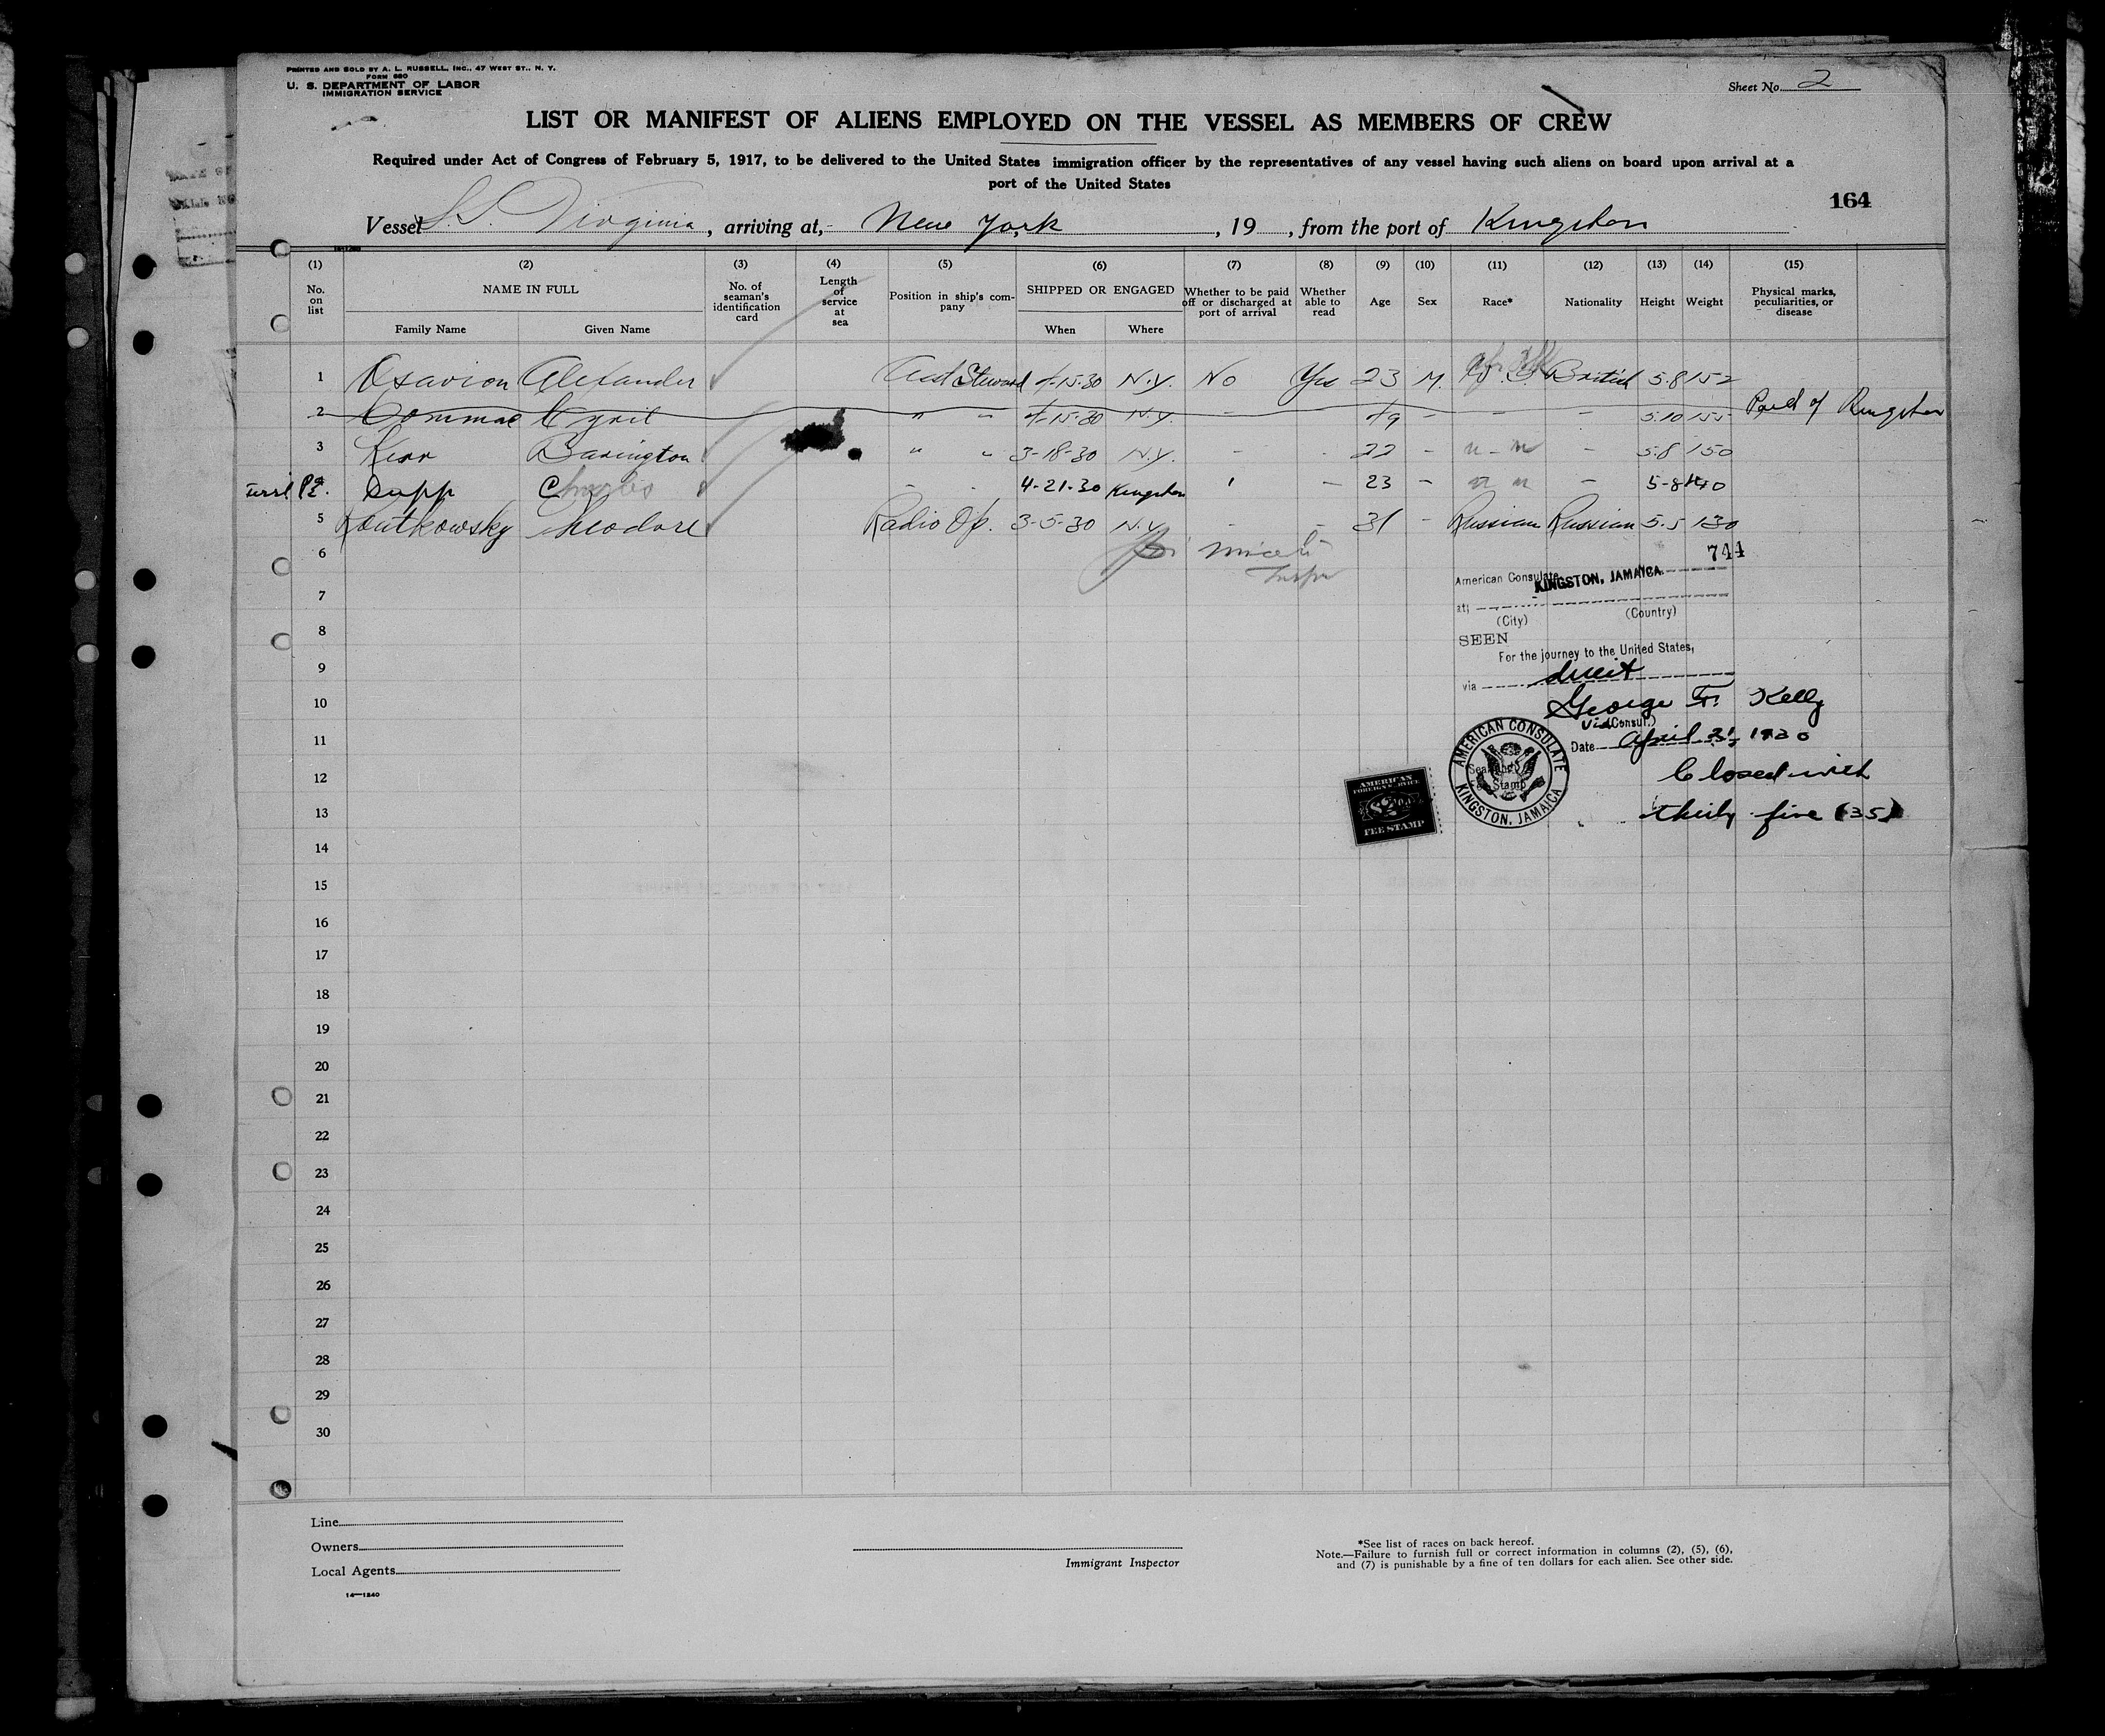 PRINTED AND SOLD BY A. L. RUSSELL, INC., 47 WEST ST., N. Y.
FORM 680
U. S. DEPARTMENT OF LABOR
IMMIGRATION SERVICE
Sheet No. 2
LIST OR MANIFEST OF ALIENS EMPLOYED ON THE VESSEL AS MEMBERS OF CREW
Required under Act of Congress of February 5, 1917, to be delivered to the United States immigration officer by the representatives of any vessel having such aliens on board upon arrival at a
port of the United States
164
Vessel S.S. Virginia, arriving at, New York, 19 , from the port of Kingston
(1) (2) (3) (4) (5) (6) (7) (8) (9) (10) (11) (12) (13) (14) (15)
No. on list NAME IN FULL Family Name Given Name No. of seaman's identification card Length of service at sea Position in ship's company SHIPPED OR ENGAGED When Where Whether to be paid off or discharged at port of arrival Whether able to read Age Sex Race* Nationality Height Weight Physical marks, peculiarities, or disease
1 Alexander Steward 4-15-30 N.Y. No Yes 23 M. British 5.8 152
2 Cyril " " 4-15-30 N.Y. - 49 - - - 5.10 155 Kingston
3 Kerr Barington " " 3-18-30 N.Y. - - 22 - " - " - 5.8 150
Supp Charles - - 4-21-30 Kingston ' - 23 - " " - 5-8 140
5 Theodore Radio Op. 3-5-30 N.Y. - - 31 - Russian Russian 5.5 130
6
744
American Consulate
KINGSTON, JAMAICA.
at
(City) (Country)
7
8
SEEN
For the journey to the United States,
9
via direct
10
George F. Kelly
(Consul.)
11
Date April 21, 1930
AMERICAN CONSULATE
KINGSTON, JAMAICA
12
Closed with
AMERICAN
FOREIGN SERVICE
$2.00
FEE STAMP
13
thirty five (35)
14
15
16
17
18
19
20
21
22
23
24
25
26
27
28
29
30
Line
Owners
Local Agents
Immigrant Inspector
*See list of races on back hereof.
Note.—Failure to furnish full or correct information in columns (2), (5), (6),
and (7) is punishable by a fine of ten dollars for each alien. See other side.
14—1240